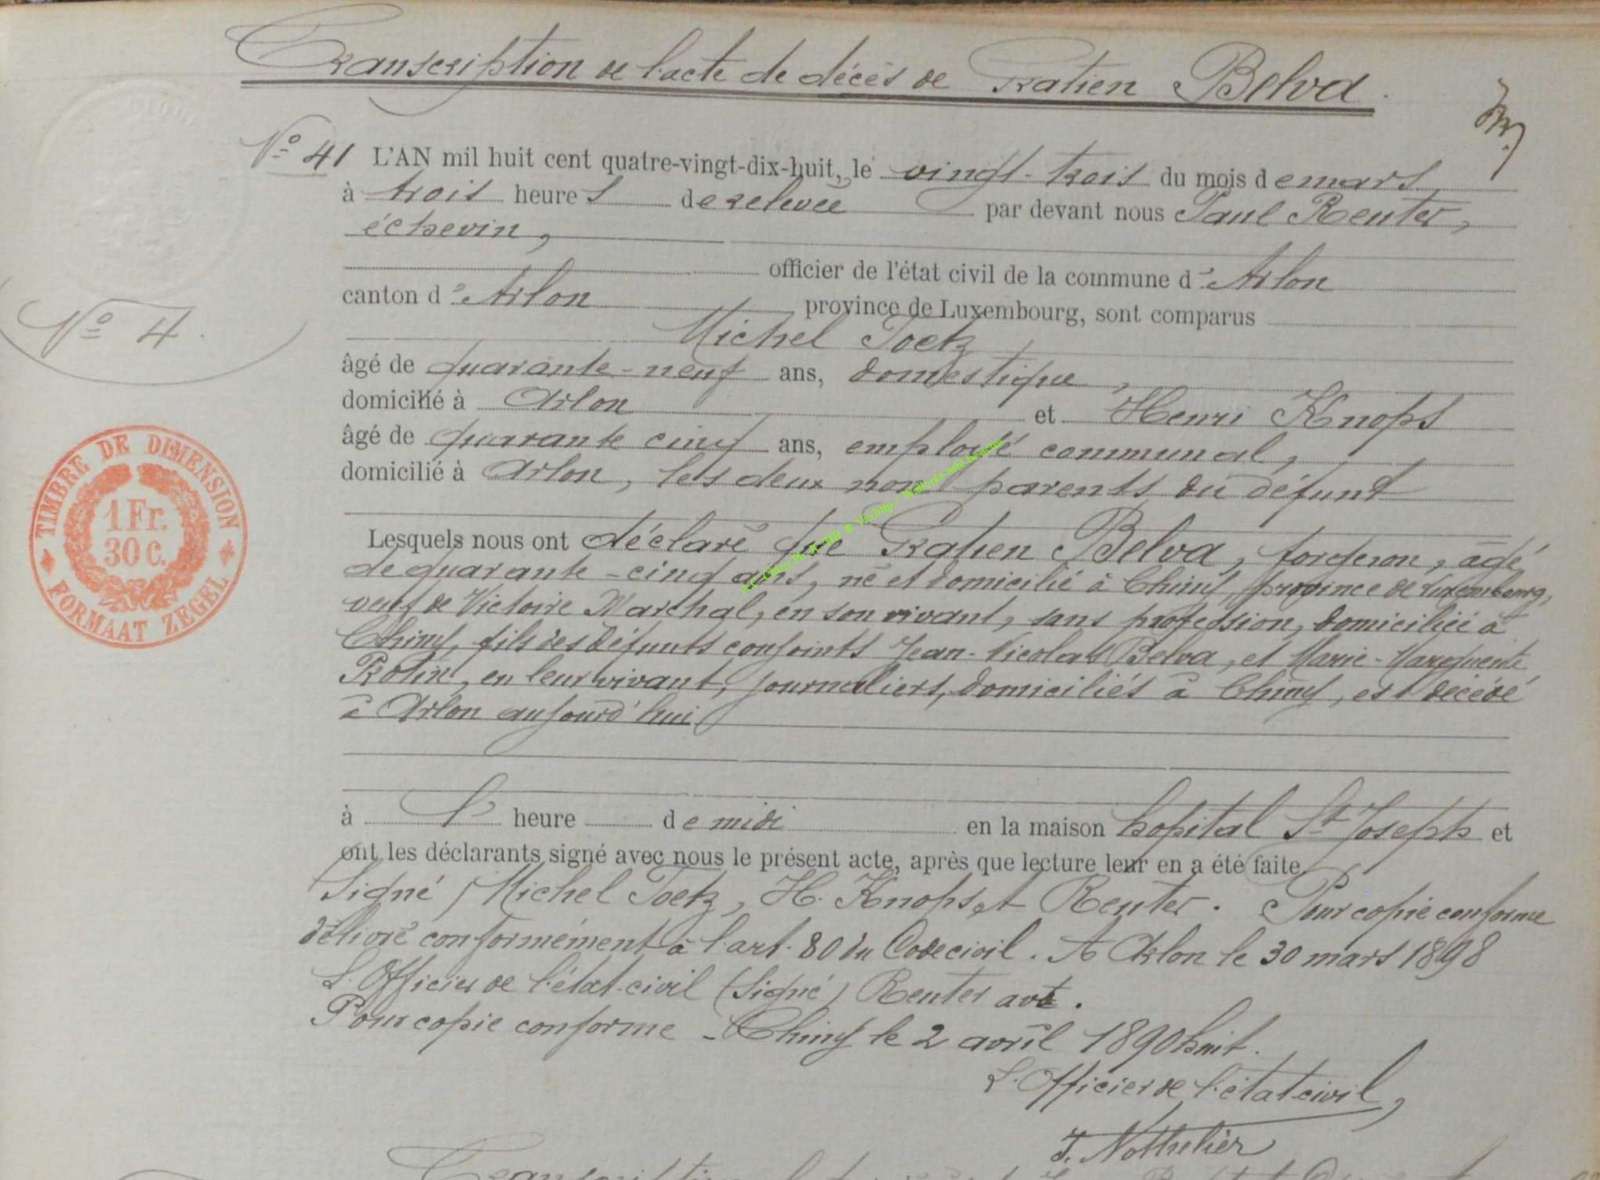 Transcription de l'acte de décès de Gratien Belva.
N° 41 L'AN mil huit cent quatre-vingt-dix-huit, le vingt-trois du mois de mars,
à trois heures de relevée par devant nous Paul Reuter,
échevin,
officier de l'état civil de la commune d'Arlon
canton d'Arlon province de Luxembourg, sont comparus
N° 4.
Michel Toetz
âgé de quarante-neuf ans, domestique,
domicilié à Arlon et Henri Knops
âgé de quarante cinq ans, employé communal,
domicilié à Arlon, les deux non parents du défunt
TIMBRE DE DIMENSION
1 Fr.
30 C.
FORMAAT ZEGEL
Lesquels nous ont déclaré que Gratien Belva, forgeron, âgé
de quarante-cinq ans, né et domicilié à Chiny, province de Luxembourg,
veuf de Victoire Marchal, en son vivant, sans profession, domiciliée à
Chiny, fils des défunts conjoints Jean-Nicolas Belva, et Marie-Marguerite
Rolin, en leur vivant, journaliers, domiciliés à Chiny, est décédé
à Arlon aujourd'hui
à heure de midi en la maison hopital St Joseph et
ont les déclarants signé avec nous le présent acte, après que lecture leur en a été faite
Signé) Michel Toetz, H. Knops et Reuter. Pour copie conforme
délivré conformément à l'art. 80 du Code civil. A Arlon le 30 mars 1898
L'Officier de l'état-civil (Signé) Reuter
Pour copie conforme - Chiny le 2 avril 1890 huit.
L'Officier de l'état civil,